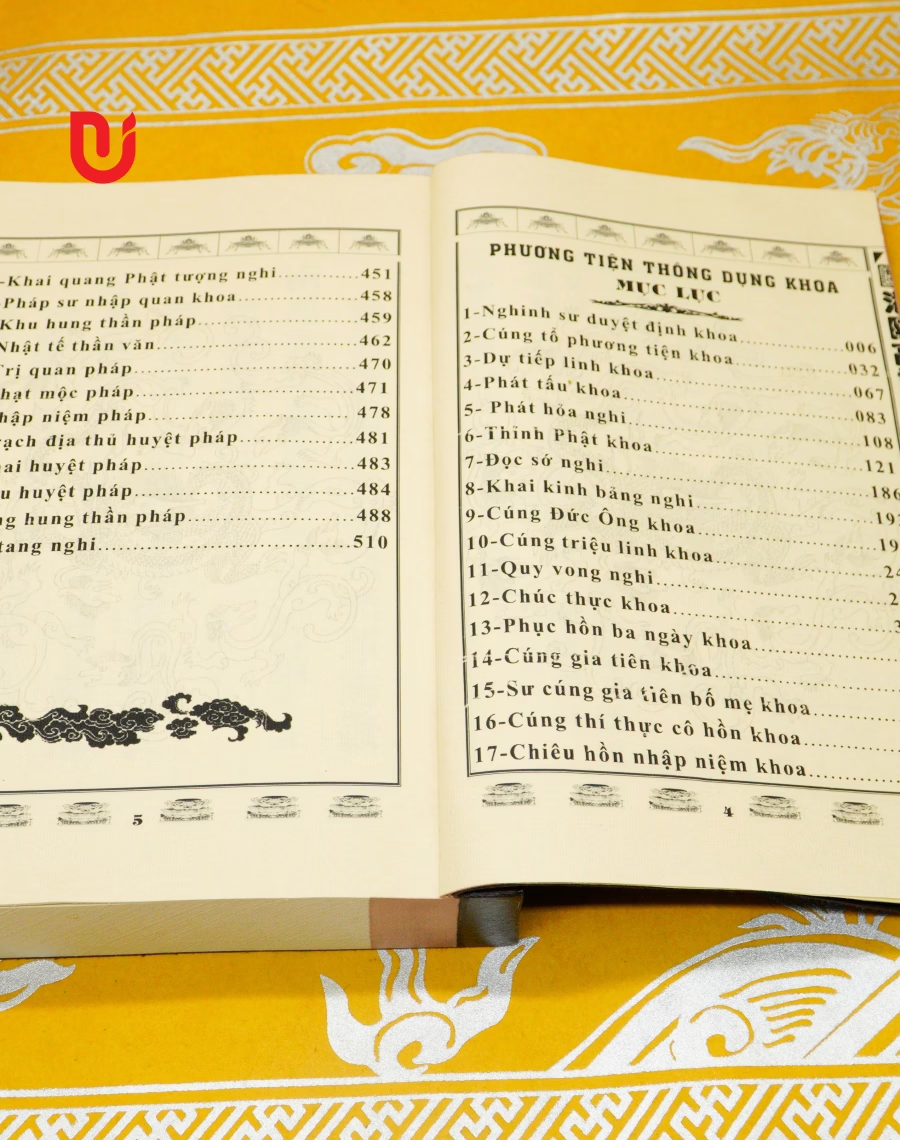 PHƯƠNG TIỆN THÔNG DỤNG KHOA
MỤC LỤC
1-Nghinh sư duyệt định khoa....................006
2-Cúng tổ phương tiện khoa....................032
3-Dự tiếp linh khoa....................067
4-Phát tấu khoa....................083
5- Phát hỏa nghi....................108
6-Thỉnh Phật khoa....................121
7-Đọc sớ nghi....................186
8-Khai kinh bảng nghi....................
9-Cúng Đức Ông khoa....................
10-Cúng triệu linh khoa....................
11-Quy vong nghi....................
12-Chúc thực khoa....................
13-Phục hồn ba ngày khoa....................
14-Cúng gia tiên khoa....................
15-Sư cúng gia tiên bố mẹ khoa....................
16-Cúng thí thực cô hồn khoa....................
17-Chiêu hồn nhập niệm khoa....................
4
-Khai quang Phật tượng nghi....................451
-Pháp sư nhập quan khoa....................458
Khu hung thần pháp....................459
Nhật tế thần văn....................462
Trị quan pháp....................470
mộc pháp....................471
niệm pháp....................478
địa thủ huyệt pháp....................481
huyệt pháp....................483
huyệt pháp....................484
hung thần pháp....................488
tang nghi....................510
5